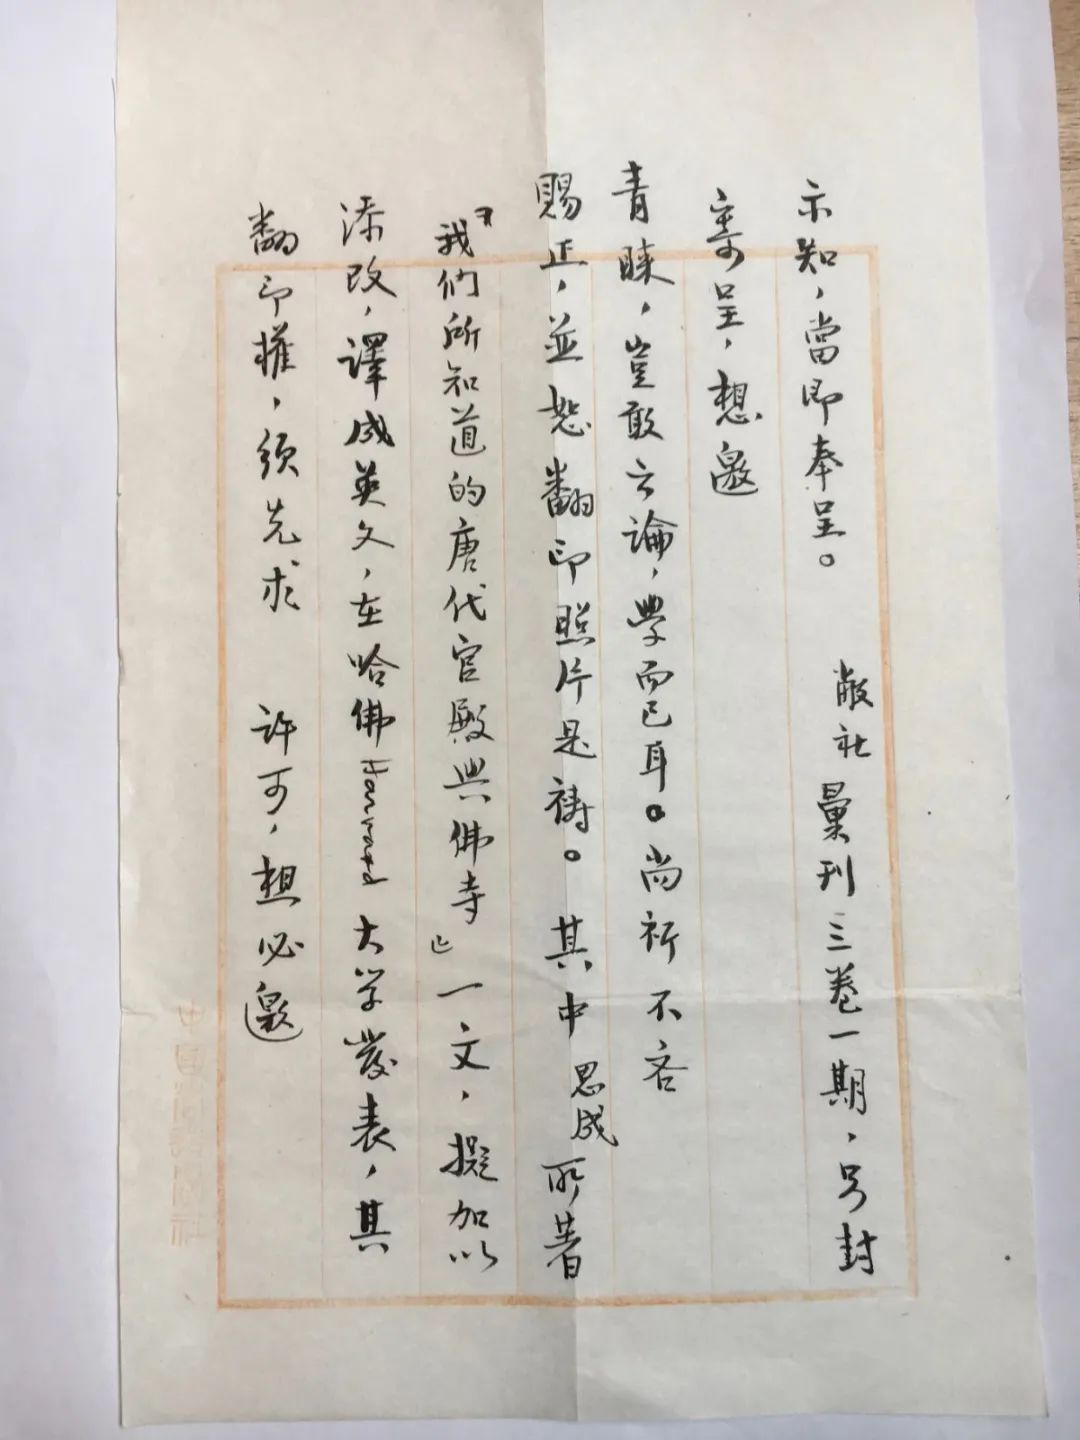 示知，當即奉呈。　敝社彙刊三卷一期，另封
寄呈，想邀
青睞，豈敢云論，學而已耳。尚祈不吝
賜正，並恕翻印照片是禱。其中思成所著
『我們所知道的唐代宫殿與佛寺』一文，擬加以
添改，譯成英文，在哈佛Harvard大学發表，其
翻印權，須先求　許可，想必邀
中國營造學社